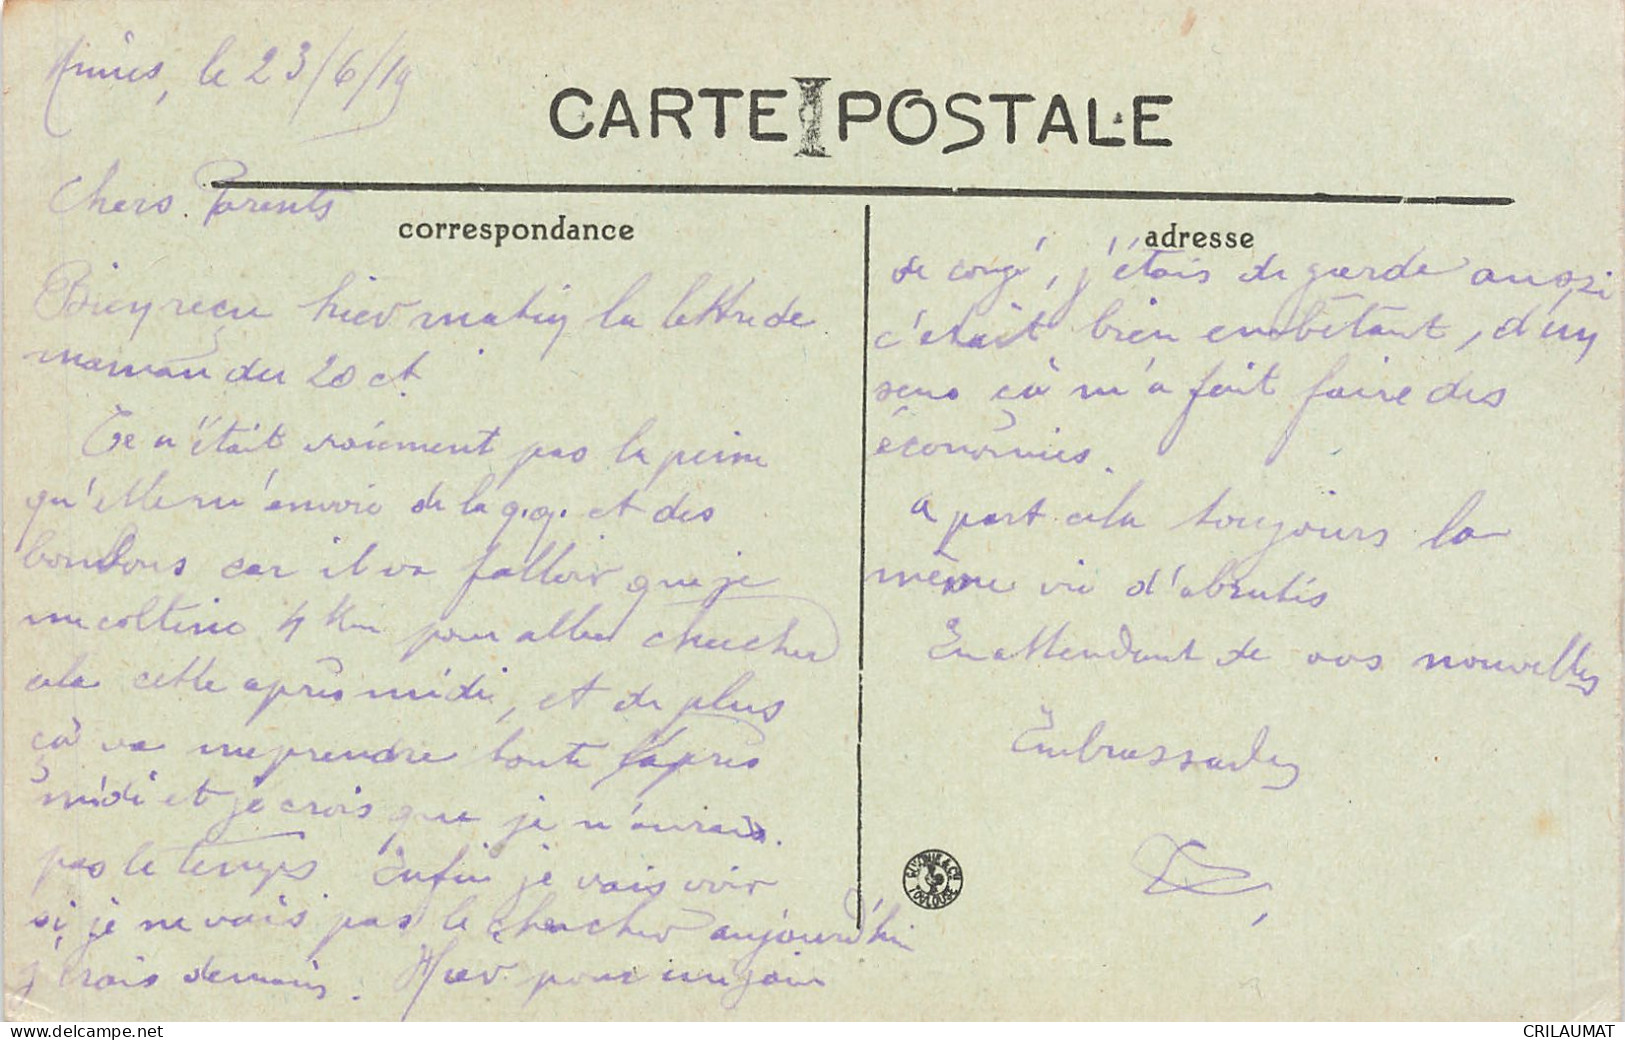 Nîmes, le 23/6/19
CARTE POSTALE
Chers Parents
correspondance
Bien reçu hier matin la lettre de
maman du 20 ct.
Ce n'était vraiment pas la peine
qu'elle m'envoie de la q.q. et des
bonbons car il va falloir que je
me coltine 4 Km pour aller chercher
cela cette après midi, et de plus
çà va me prendre toute l'après
midi et je crois que je n'aurais
pas le temps Enfin je vais voir
si je ne vais pas le chercher aujourd'hui
j'irais demain. Hier pour un jour
adresse
de congé, j'étais de garde aussi
c'était bien embêtant, d'un
sens çà m'a fait faire des
économies.
A part cela toujours la
même vie d'abrutis
En attendant de vos nouvelles
Embrassades
TOULOUSE
CRILAUMAT